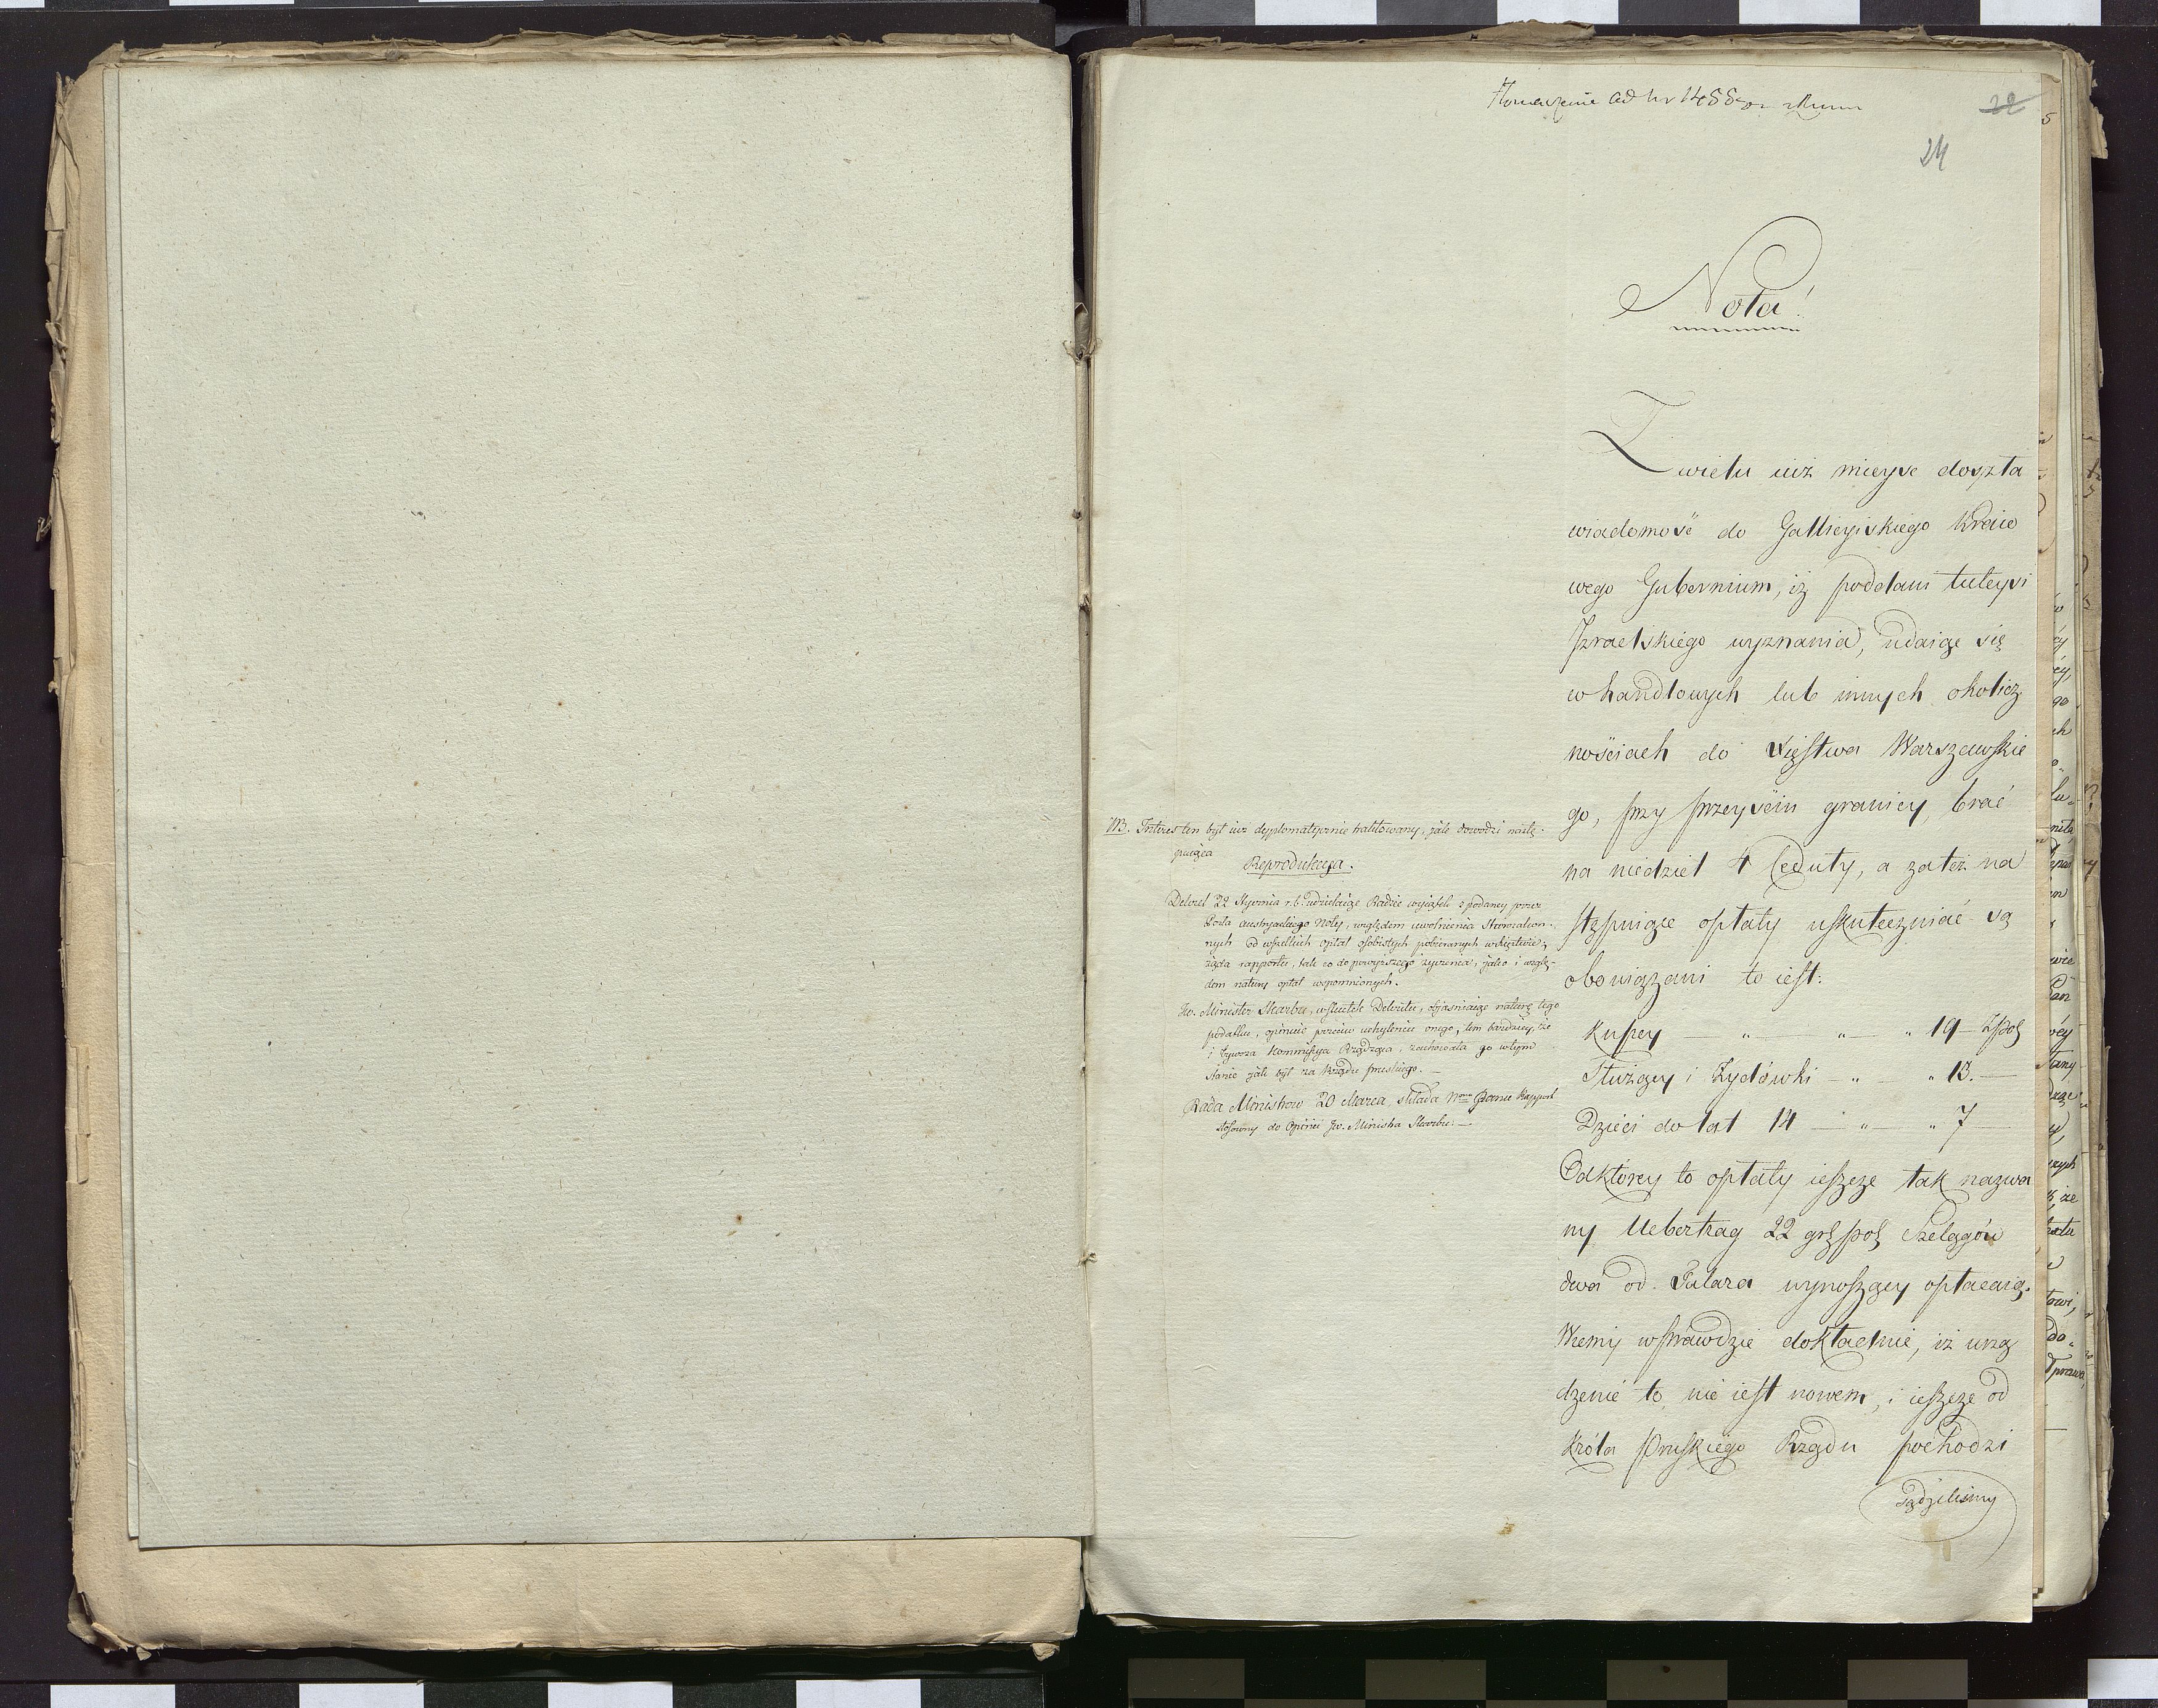 Tłomaczenie ad Nr 1455
22
24
Nota!
Z wielu iuż mieysc doszła
wiadomość do Gallicyiskiego Kraio
wego Gubernium, iż poddani tuteysi
Izraelskiego wyznania, udaiąc się
w handlowych lub innych okolicz
nościach do Xięstwa Warszawskie
go, przy przeyściu granicy, brać
na niedziel 4 Ceduły, a zatéż na
stępuiące opłaty uskuteczniać są
obowiązani to iest:
Kupcy — „ — „ — „ 19 — Zł pol
Służący i Żydówki — „ — „ 13. —
Dzieci do lat 14 — „ — „ 7 —
Od którey to opłaty ieszcze tak nazwa
ny Uebertrag 22 gr pol Szelągów
dwa od Talara wynoszący opłacaią.
Wiemy wprawdzie dokładnie, iż urzą
dzenie to nie iest nowem, i ieszcze od
Króla Pruskiego Rządu pochodzi
Sądziliśmy
NB. Interes ten był iuż dyplomatycznie traktowany, jak dowodzi nastę-
puiąca
Reprodukcya.
Dekret 22 Stycznia r. b. udzielaiąc Radzie wyciąg z podaney przez
Posła austryackiego Noty, względem uwolnienia Starozakon-
nych od wszelkich opłat osobistych pobieranych w Xięstwie,
żąda rapportu, tak co do powyższego życzenia, jako i wzglę-
dem natury opłat wspomnionych.
Jw. Minister Skarbu, w skutek Dekretu, obiaśniaiąc naturę tego
podatku, opiniuie przeciw uchyleniu onego, tem bardziey, że
i bywsza Kommissya Rządząca, zachowała go w tym
stanie jak był za Rządu pruskiego. —
Rada Ministrow 20 Marca, składa Nmu Panu Rapport
stosowny do Opinii Jw. Ministra Skarbu. —